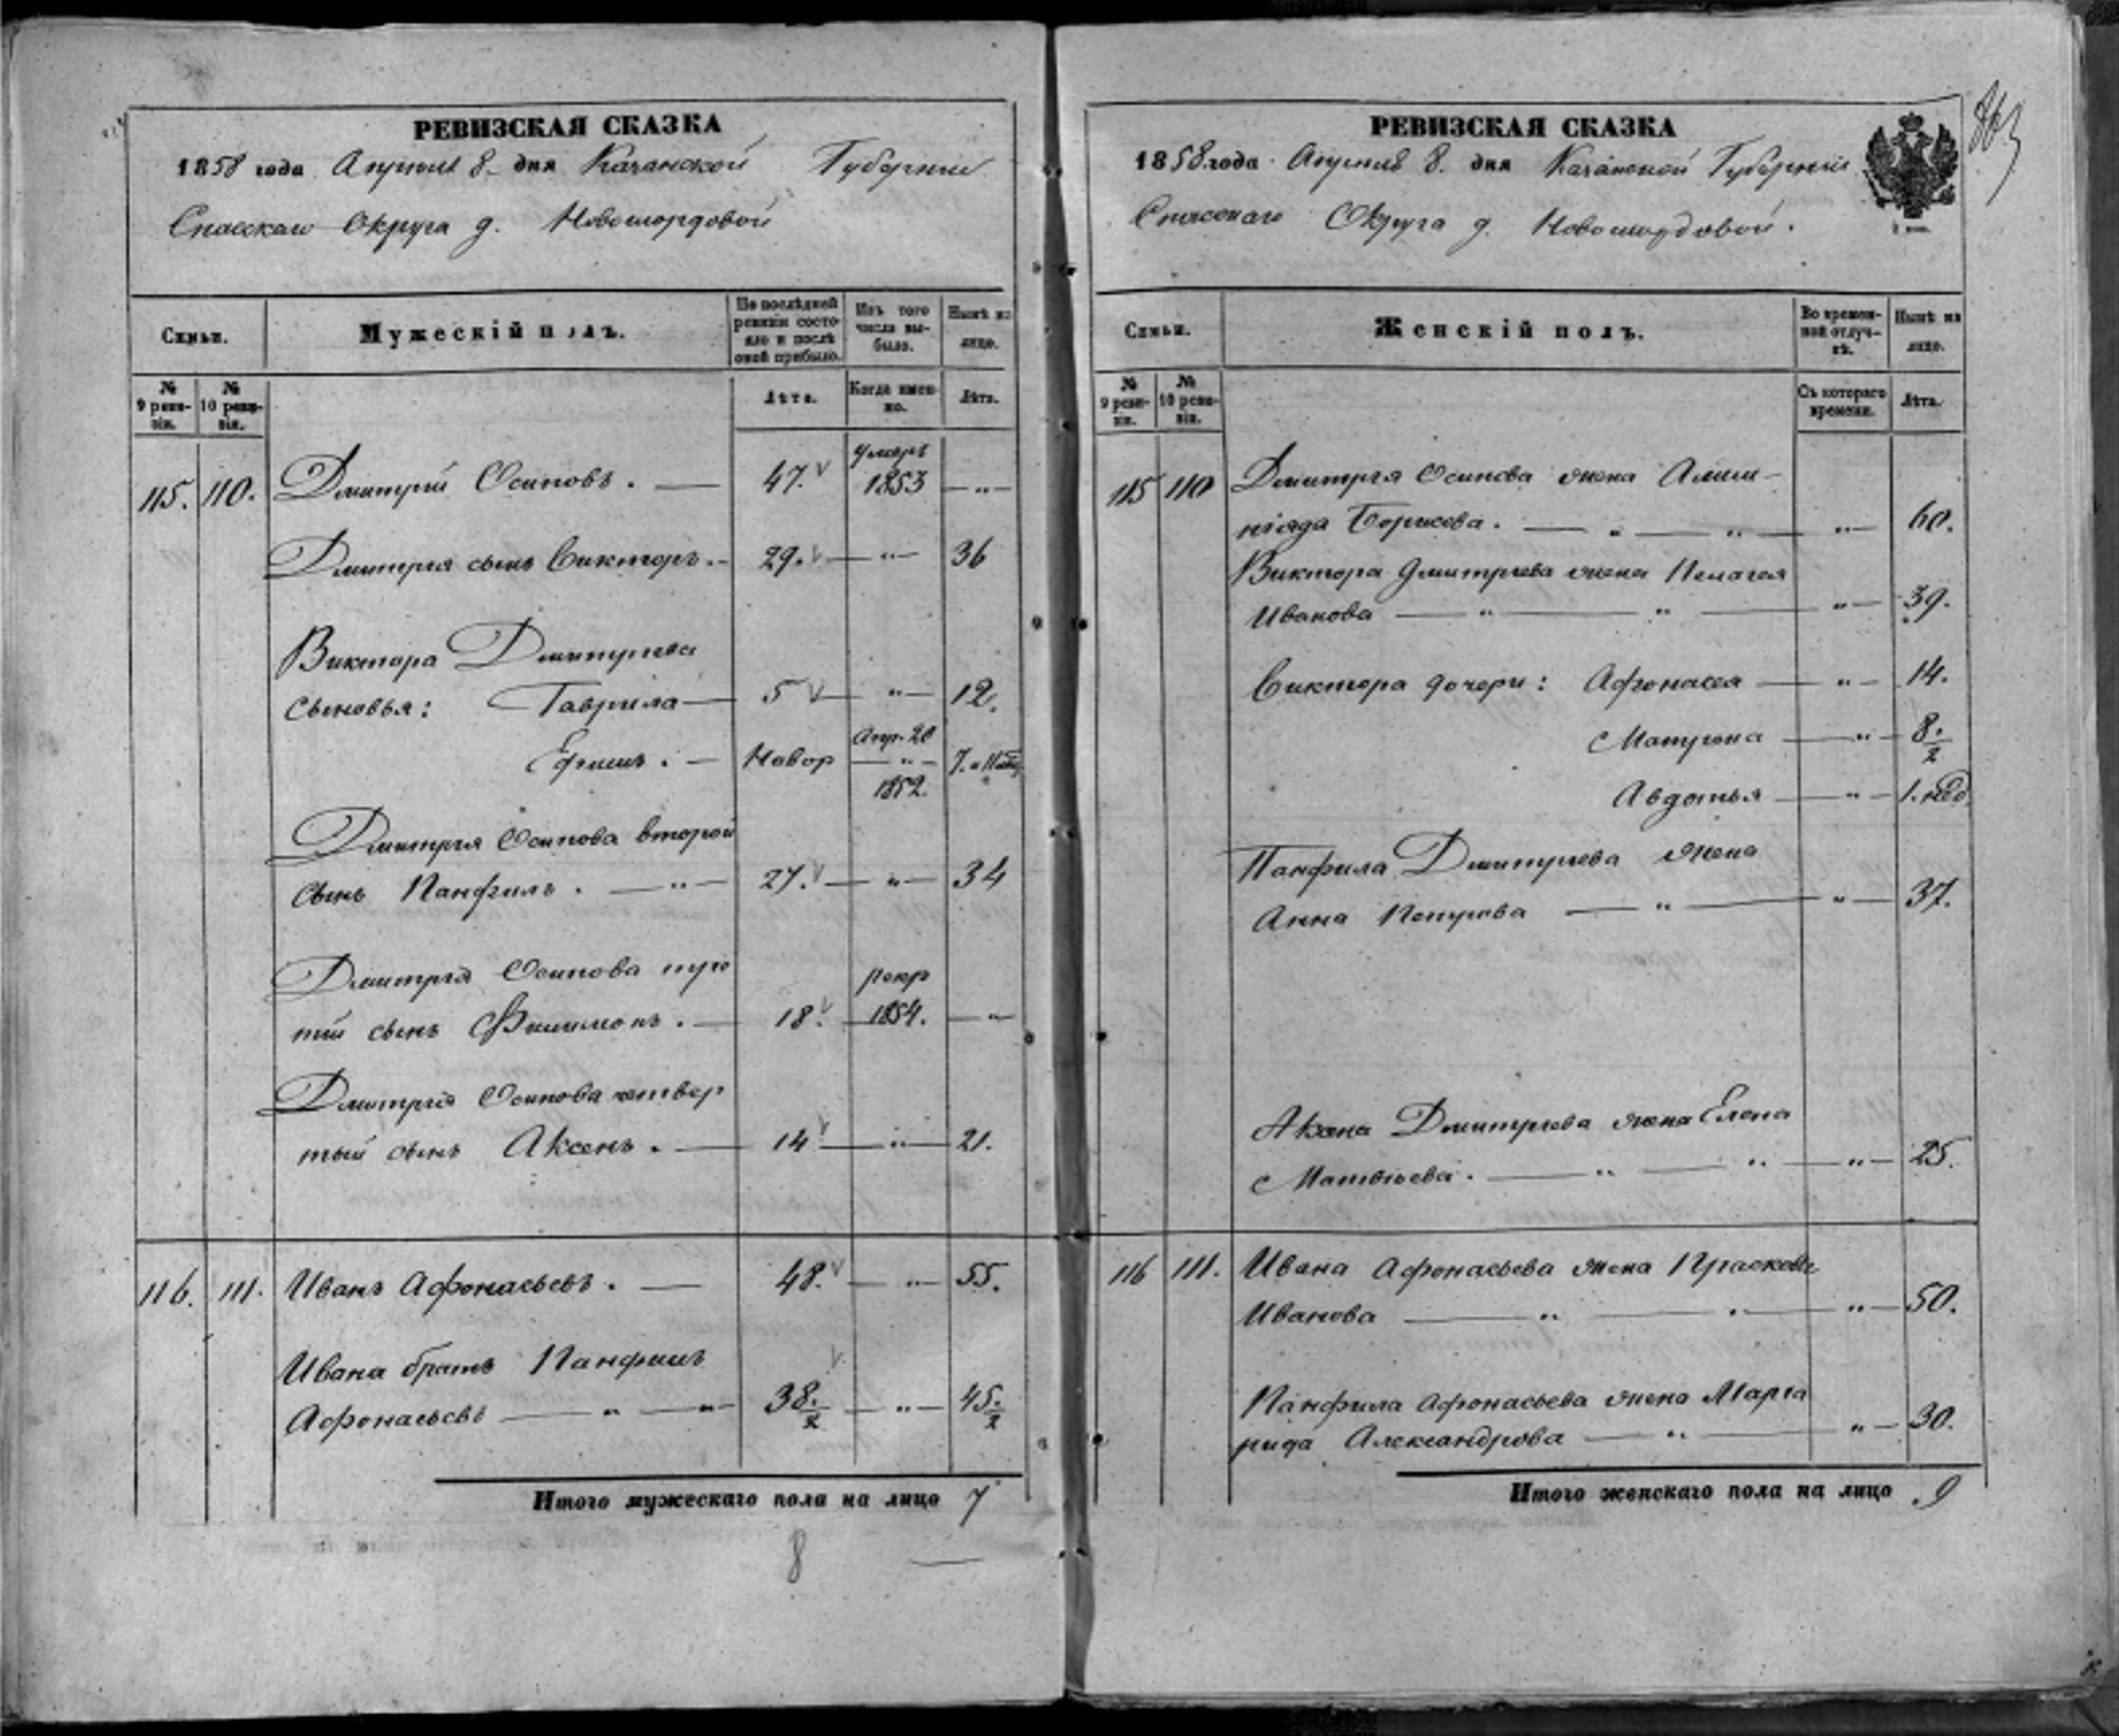 РЕВИЗСКАЯ СКАЗКА
1858 года Апреля 8. дня Казанской Губернии
Спасскаго Округа д. Новомордовой
Семьи. Мужескій полъ. По послѣдней ревизіи состояло и послѣ оной прибыло. Изъ того числа выбыло. Нынѣ на лицо.
№ 9 ревизіи. № 10 ревизіи. Лѣта. Когда именно. Лѣта.
умеръ
115. 110. Дмитрій Осиповъ. — 47. 1853 — „ —
Дмитрія сынъ Викторъ. — 29. — „ — 36
Виктора Дмитриева
сыновья: Гаврила — 5 — „ — 12.
Апр. 20
Ефимъ. — Новор — „ — 7.
1852.
Дмитрія Осипова второй
сынъ Панфилъ. — „ — 27. — „ — 34
Дмитрія Осипова тре рекр
тій сынъ Филимонъ. — 18. 1854. — „
Дмитрія Осипова четвер
тый сынъ Аксенъ. — 14 — „ — 21.
116. 111. Иванъ Афонасьевъ. — 48. — „ — 55.
Ивана братъ Панфилъ
Афонасьевъ — „ — „ — 38./2 — „ — 45./2
Итого мужескаго пола на лицо 7
8 —
РЕВИЗСКАЯ СКАЗКА
1858 года Апреля 8. дня Казанской Губерніи
Спасскаго Округа д. Новомордовой.
Семьи. Женскій полъ. Во временной отлучкѣ. Нынѣ на лицо.
№ 9 ревизіи. № 10 ревизіи. Съ котораго времени. Лѣта.
115 110 Дмитрія Осипова жена Алим-
піяда Борисова. — „ — „ — „ — 60.
Виктора Дмитриева жена Пелагея
Иванова — „ — „ — „ — 39.
Виктора дочери: Афонасея — „ — 14.
Матрена — „ — 8./2
Авдотья — „ — 1. нед
Панфила Дмитриева жена
Анна Петрова — „ — „ — 37.
Аксена Дмитриева жена Елена
Матвѣева. — „ — „ — „ — 25.
116 111. Ивана Афонасьева жена Прасковья
Иванова — „ — „ — „ — 50.
Панфила Афонасьева жена Марга
рида Александрова — „ — „ — 30.
Итого женскаго пола на лицо 9